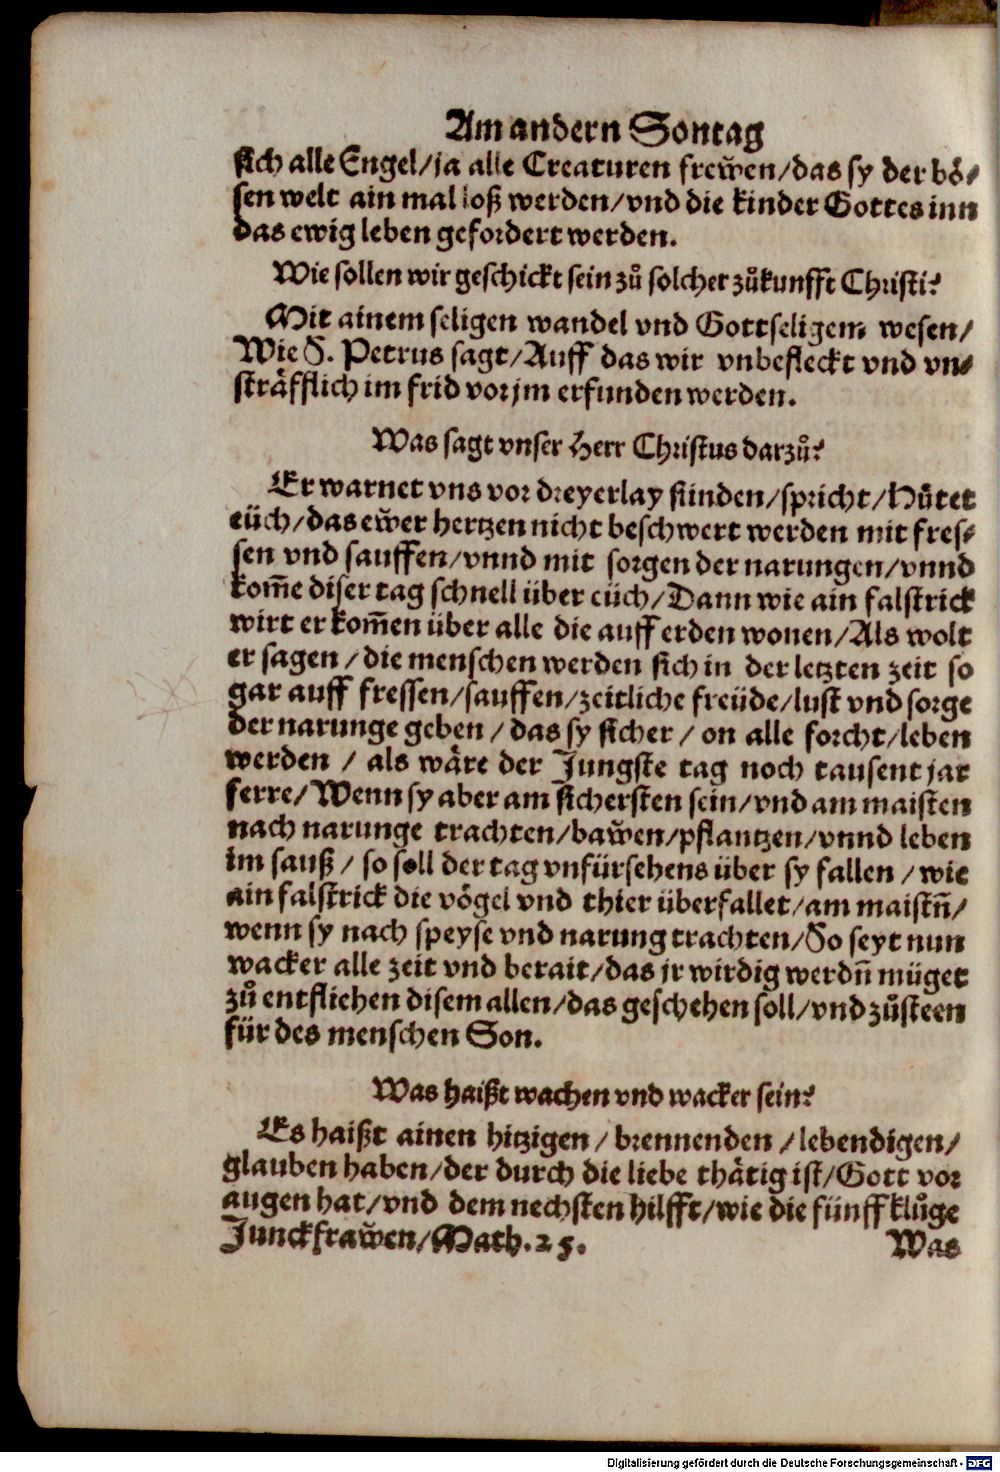 Am andern Sontag
sich alle Engel/ja alle Creaturen frew̃en/das sy der boͤ-
sen welt ain mal loß werden/vnd die kinder Gottes inn
das ewig leben gefordert werden.
Wie sollen wir geschickt sein zuͦ solcher zuͦkunfft Christi?
Mit ainem seligen wandel vnd Gottseligem wesen/
Wie S. Petrus sagt/Auff das wir vnbefleckt vnd vn-
straͤfflich im frid vor jm erfunden werden.
Was sagt vnser Herr Christus darzuͦ?
Er warnet vns vor dreyerlay sünden/spricht/Huͤtet
eüch/das ew̃er hertzen nicht beschwert werden mit fres-
sen vnd sauffen/vnnd mit sorgen der narungen/vnnd
kom̃e diser tag schnell über eüch/Dann wie ain falstrick
wirt er kom̃en über alle die auff erden wonen/Als wolt
er sagen/die menschen werden sich in der letzten zeit so
gar auff fressen/sauffen/zeitliche freüde/lust vnd sorge
der narunge geben/das sy sicher/on alle forcht/leben
werden/als waͤre der Jungste tag noch tausent jar
ferre/Wenn sy aber am sichersten sein/vnd am maisten
nach narunge trachten/baw̃en/pflantzen/vnnd leben
im sauß/so soll der tag vnfürsehens über sy fallen/wie
ain falstrick die voͤgel vnd thier überfallet/am maistñ/
wenn sy nach speyse vnd narung trachten/So seyt nun
wacker alle zeit vnd berait/das jr wirdig werdñ müget
zuͦ entfliehen disem allen/das geschehen soll/vnd zuͦsteen
für des menschen Son.
Was haißt wachen vnd wacker sein?
Es haißt ainen hitzigen/brennenden/lebendigen/
glauben haben/der durch die liebe thaͤtig ist/Gott vor
augen hat/vnd dem nechsten hilfft/wie die fünff kluͦge
Junckfraw̃en/Math.25.
Was
Digitalisierung gefördert durch die Deutsche Forschungsgemeinschaft - DFG